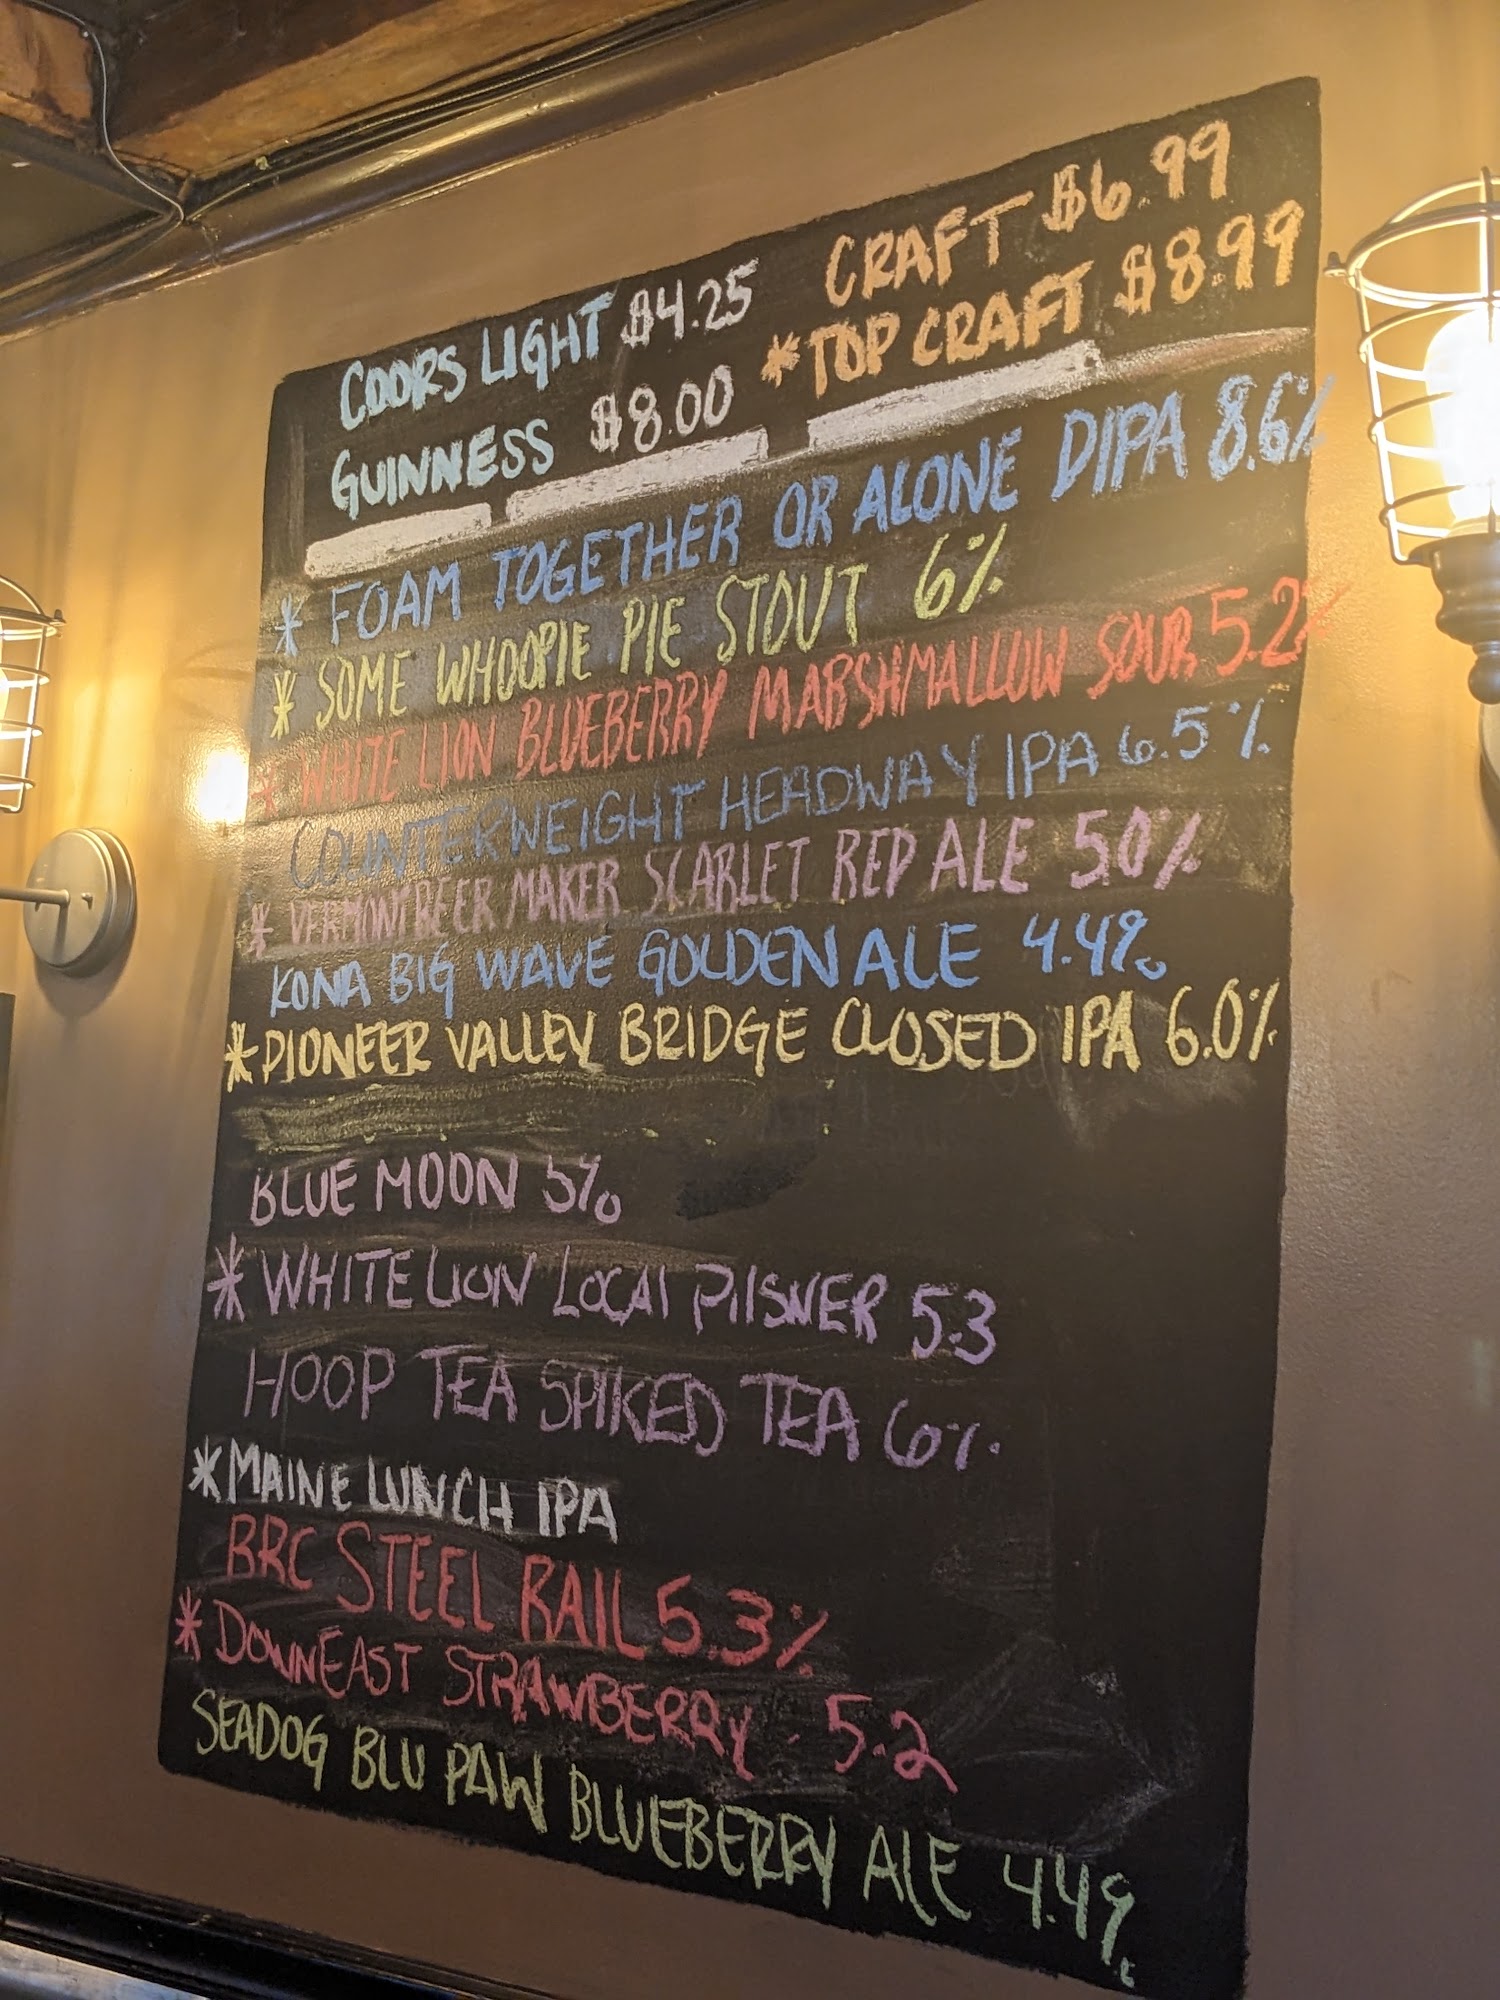 COORS LIGHT $4.25
GUINNESS $8.00
CRAFT $6.99
*TOP CRAFT $8.99
* FOAM TOGETHER OR ALONE DIPA 8.6%
* SOME WHOOPIE PIE STOUT 6%
* WHITE LION BLUEBERRY MARSHMALLOW SOUR 5.2%
COUNTERWEIGHT HEADWAY IPA 6.5%
* VERMONT BEER MAKER SCARLET RED ALE 5.0%
KONA BIG WAVE GOLDEN ALE 4.4%
*PIONEER VALLEY BRIDGE CLOSED IPA 6.0%
BLUE MOON 5%
*WHITE LION LOCAL PILSNER 5.3
HOOP TEA SPIKED TEA 6%
*MAINE LUNCH IPA
BRC STEEL RAIL 5.3%
*DOWNEAST STRAWBERRY - 5.2
SEADOG BLU PAW BLUEBERRY ALE 4.4%